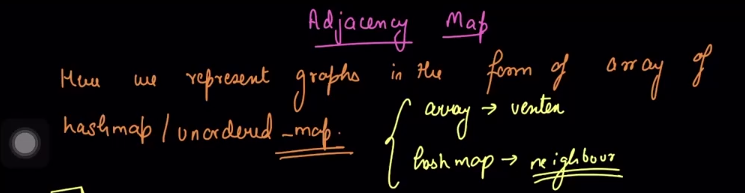 Adjacency Map
Here we represent graphs in the form of array of
hashmap / unordered_map.
array → vertex
hashmap → neighbour